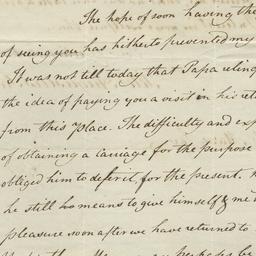 The hope of soon having the
of seeing you has hitherto prevented my
It was not till today that Papa relinq
the idea of paying you a visit in his ret
from this place. The difficulty and exp
of obtaining a carriage for the purpose
obliged him to defer it for the present.
he still ho means to give himself & me
pleasure soon after we have returned to